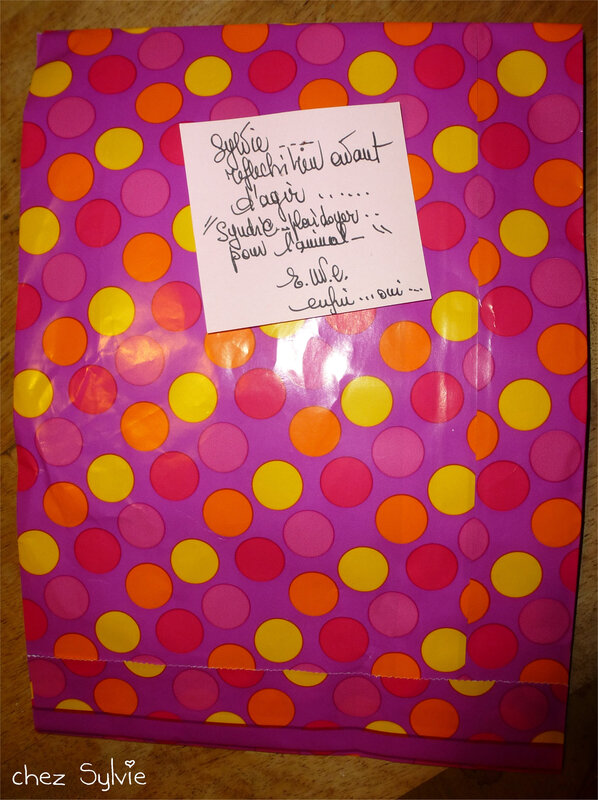 Sylvie ......
réfléchi bien avant
d'agir ......
"Syndic - plaidoyer..
pour l'animal - "
E.W.C.
enfin ... oui ...
chez Sylvie